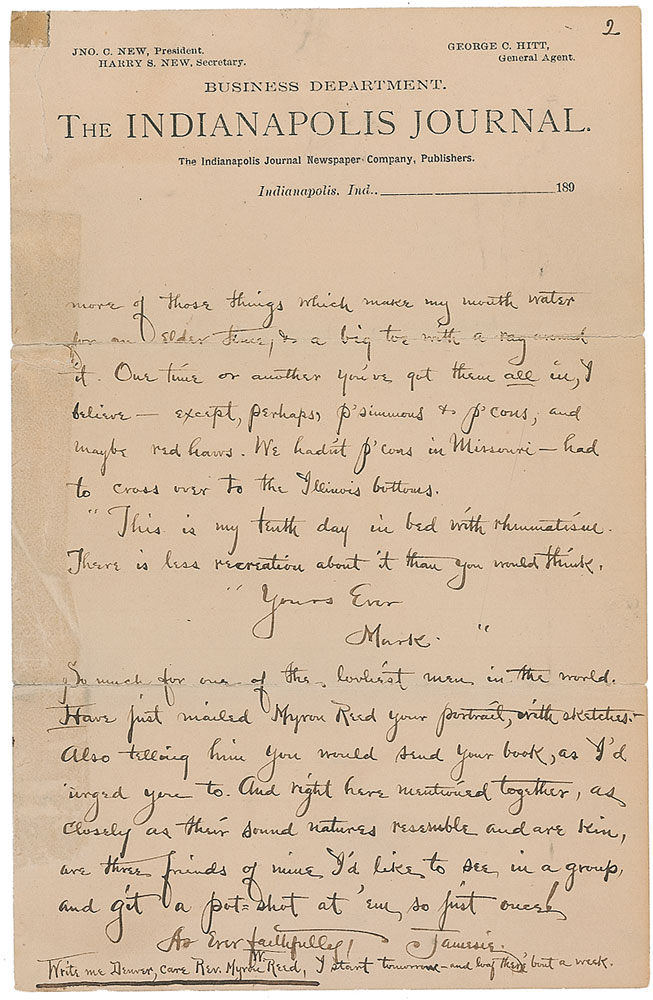 2
JNO. C. NEW, President.
HARRY S. NEW, Secretary.
GEORGE C. HITT,
General Agent.
BUSINESS DEPARTMENT.
THE INDIANAPOLIS JOURNAL.
The Indianapolis Journal Newspaper Company, Publishers.
Indianapolis, Ind., 189
more of those things which make my mouth water
for an elder time, & a big toe with a rag around
it. One time or another you've got them all in, I
believe — except, perhaps, p'simmons & p'cons, and
maybe red haws. We hadn't p'cons in Missouri — had
to cross over to the Illinois bottoms.
"This is my tenth day in bed with rheumatism.
There is less recreation about it than you would think.
"Yours Ever
Mark."
So much for one of the lovliest men in the world.
Have just mailed Myron Reed your portrait, with sketches.
Also telling him you would send your book, as I'd
urged you to. And right here mentioned together, as
closely as their sound natures resemble and are kin,
are three friends of mine I'd like to see in a group,
and git a pot-shot at 'em, so just once!
As Ever faithfully, Jamesie.
Write me Denver, care Rev. Myron W. Reed, I start tomorrow — and loaf there bout a week.